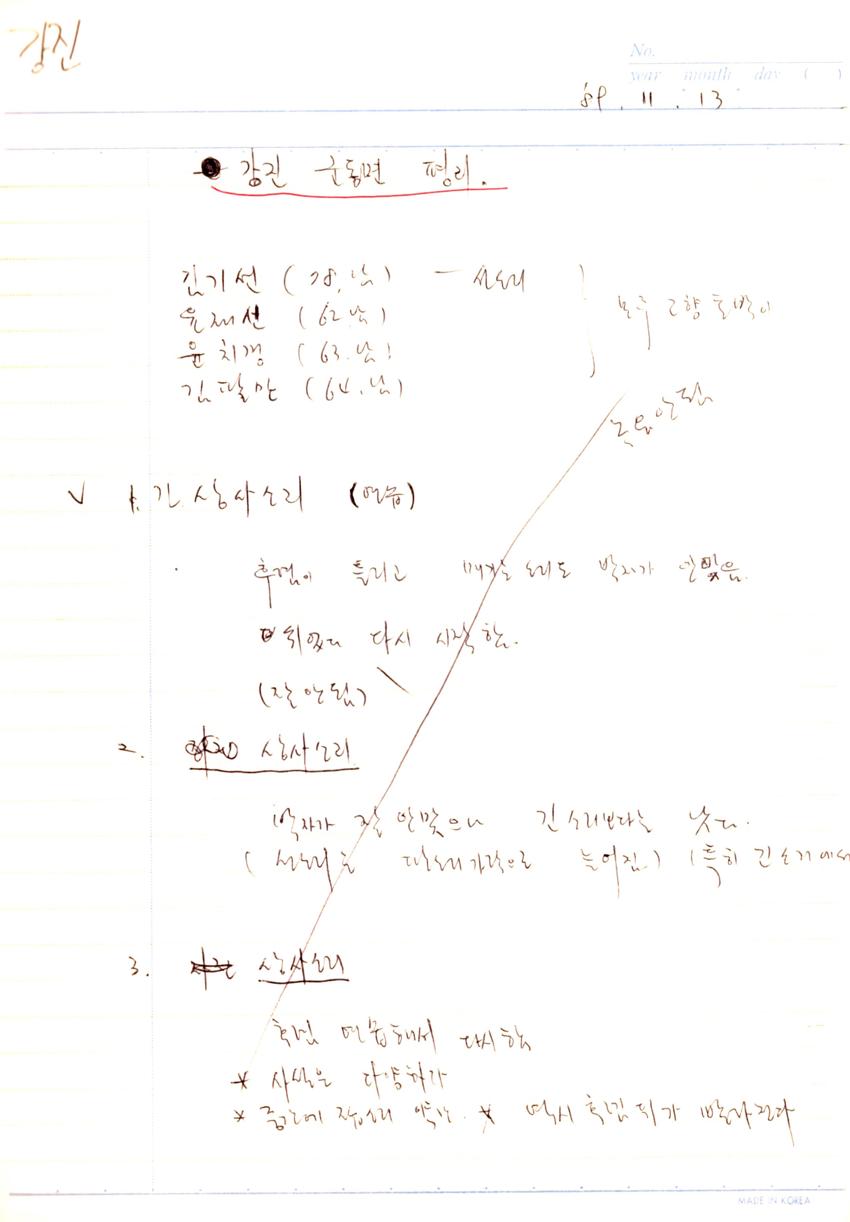 강진
No.
year month day ( )
'89. 11. 13
강진 군동면 평리.
김기선 (78, 남) — 선소리
윤재선 (62. 남)
윤치갱 (63. 남)
김달만 (64. 남)
모두 고향 토박이
녹음 안됨
✓ 1. 긴 상사소리 (연습)
후렴이 틀리고 매기는 소리도 박자가 안맞음.
쉬었다 다시 시작함.
(잘 안됨)
2. 상사소리
박자가 잘 안맞으나 긴소리보다는 낫다.
(선소리는 가락으로 늘어짐) (특히 긴소리에서
3. 상사소리
후렴 연습해서 다시함
* 사설은 다양하가
* 중간에 * 역시 후렴 뒤가 빨라진다
MADE IN KOREA